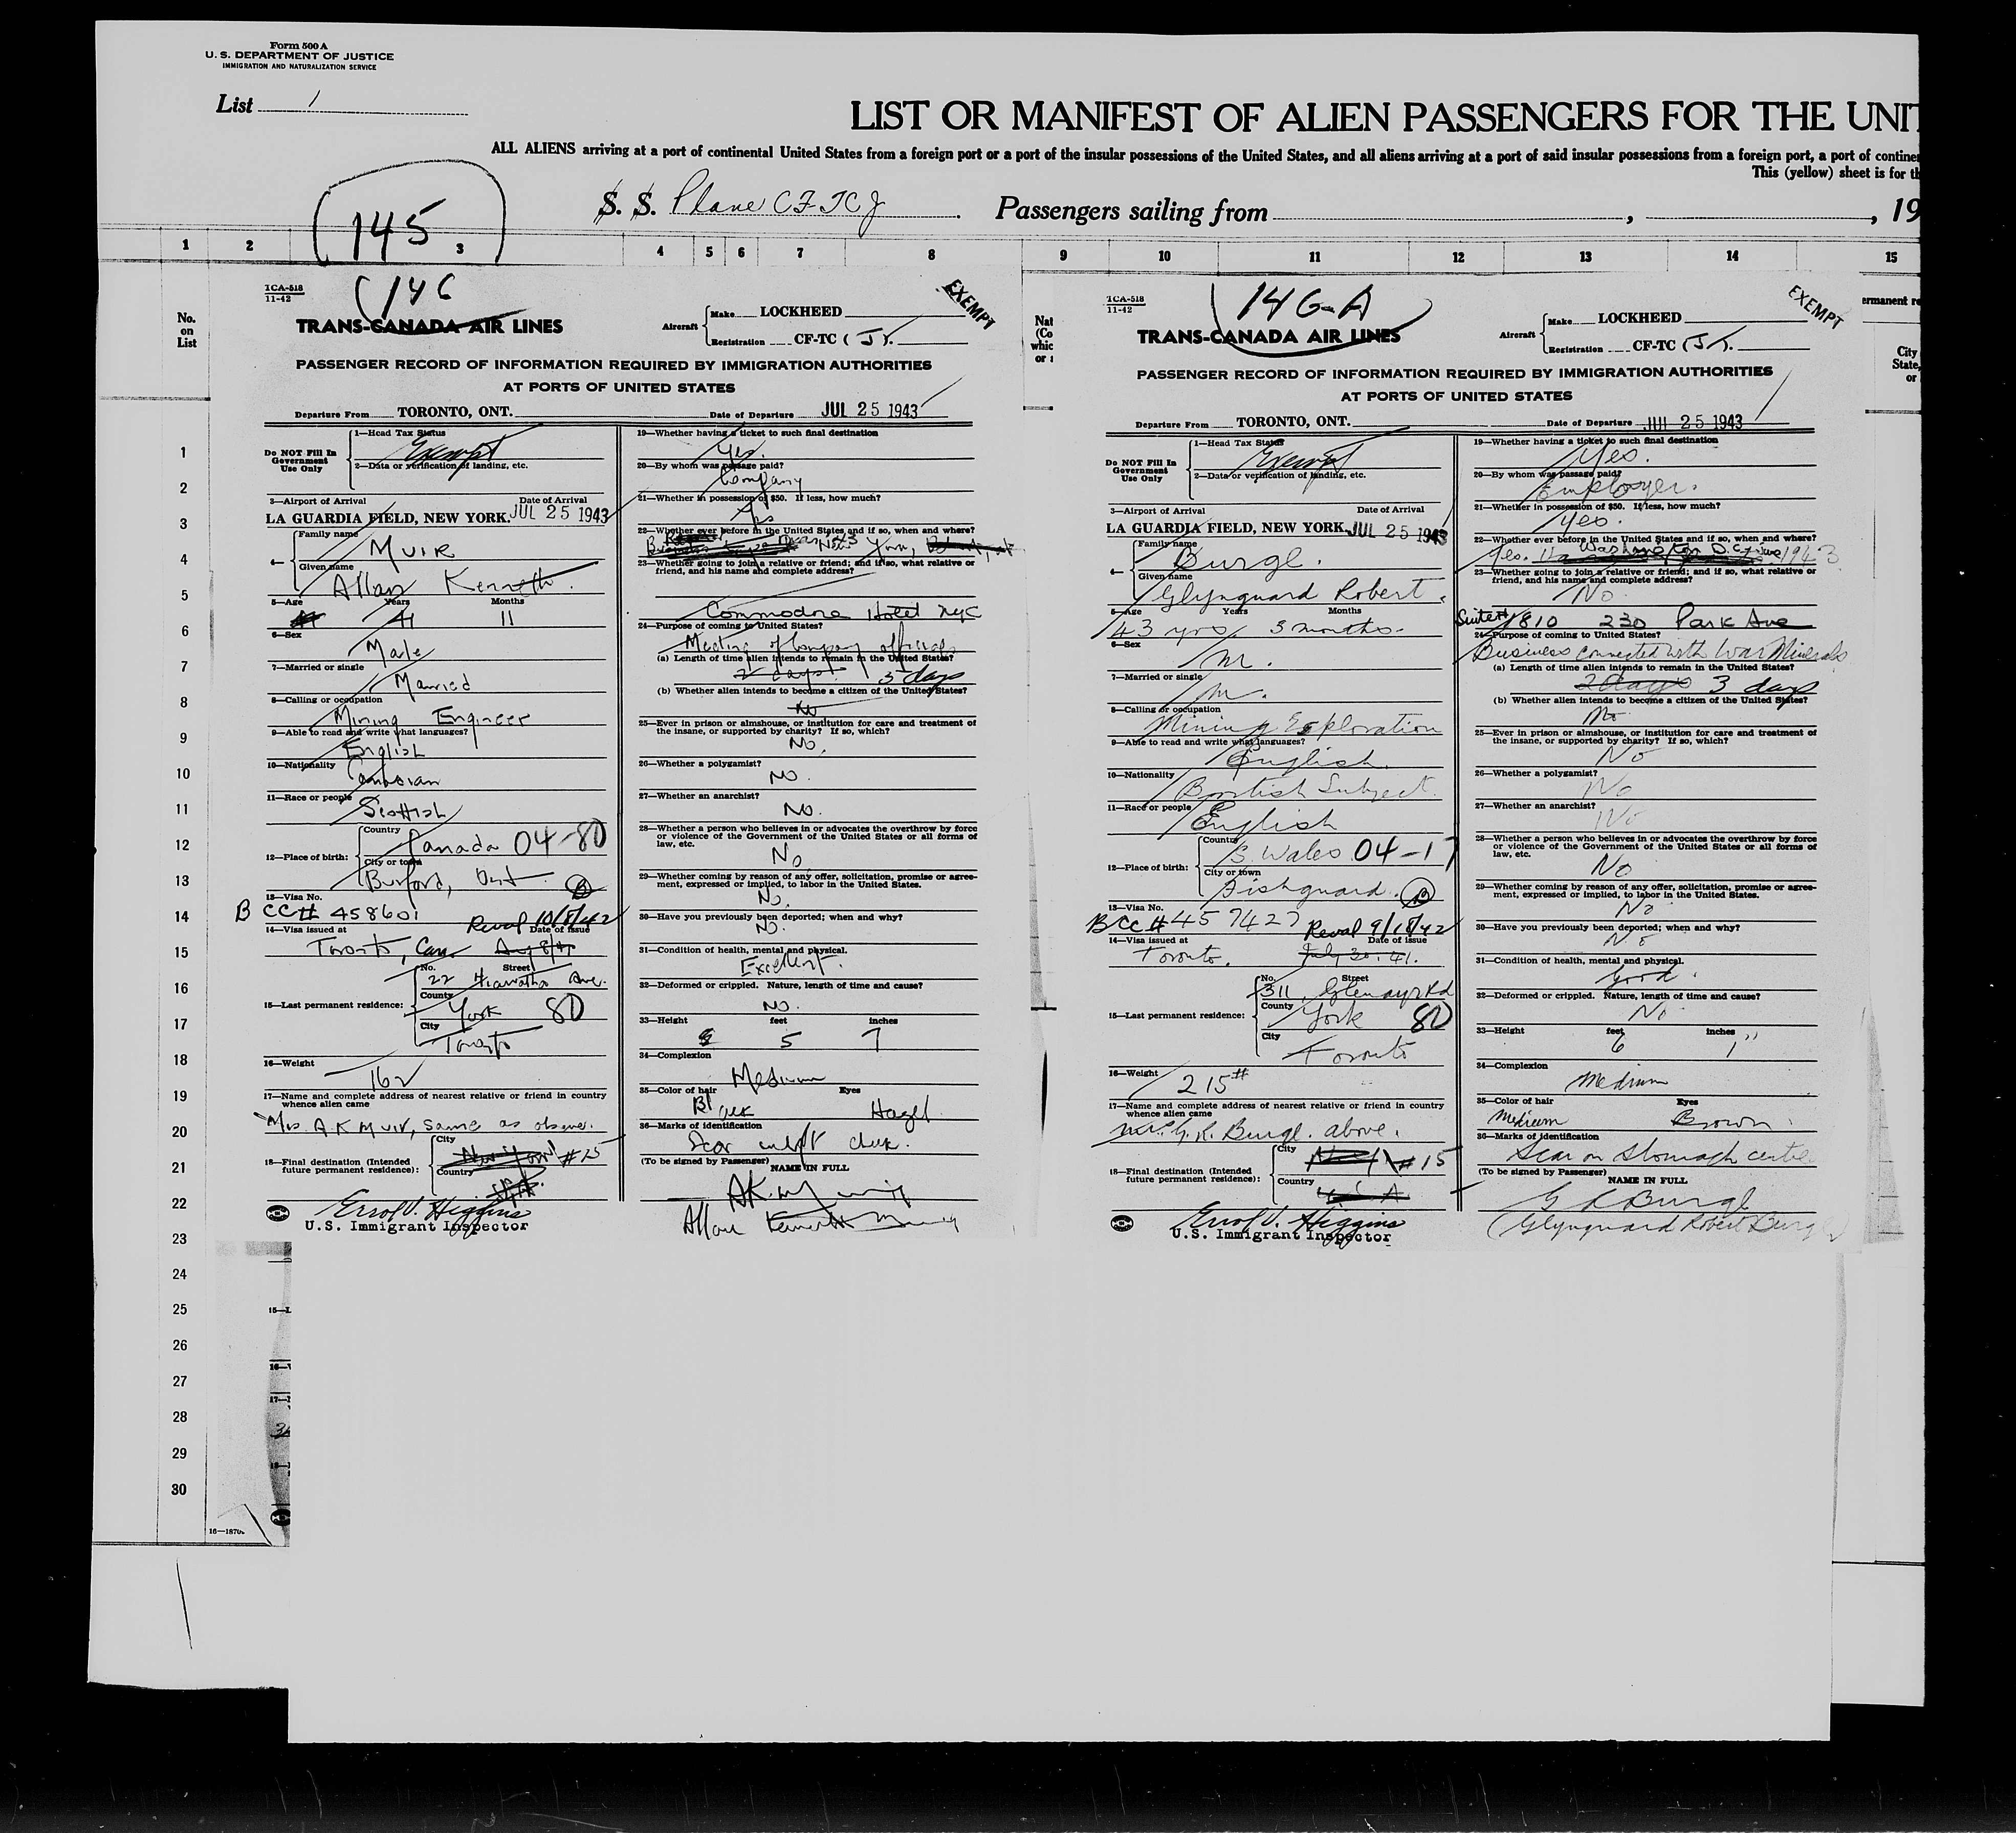 Form 500 A
U. S. DEPARTMENT OF JUSTICE
IMMIGRATION AND NATURALIZATION SERVICE
List 1
LIST OR MANIFEST OF ALIEN PASSENGERS FOR THE UNIT
ALL ALIENS arriving at a port of continental United States from a foreign port or a port of the insular possessions of the United States, and all aliens arriving at a port of said insular possessions from a foreign port, a port of contine
This (yellow) sheet is for th
145
S. S. Plane CF-TCJ. Passengers sailing from , , 19
1 2 3 4 5 6 7 8 9 10 11 12 13 14 15
No.
on
List
1
2
3
4
5
6
7
8
9
10
11
12
13
14
15
16
17
18
19
20
21
22
23
24
25
26
27
28
29
30
TCA-518
11-42
146
EXEMPT
TRANS-CANADA AIR LINES
Aircraft
Make LOCKHEED
Registration CF-TC (J).
PASSENGER RECORD OF INFORMATION REQUIRED BY IMMIGRATION AUTHORITIES
AT PORTS OF UNITED STATES
Departure From TORONTO, ONT. Date of Departure JUL 25 1943
Do NOT Fill In
Government
Use Only
1—Head Tax Status
Exempt
2—Data or verification of landing, etc.
3—Airport of Arrival Date of Arrival
LA GUARDIA FIELD, NEW YORK. JUL 25 1943
4— Family name
Muir
Given name
Allan Kenneth
5—Age Years Months
41 11
6—Sex
Male
7—Married or single
Married
8—Calling or occupation
Mining Engineer
9—Able to read and write what languages?
English
10—Nationality
Canadian
11—Race or people
Scottish
12—Place of birth:
Country
Canada 04-80
City or town
Burford, Ont.
B
13—Visa No.
B CC# 458601 Reval 10/8/42
14—Visa issued at Date of issue
Toronto, Can. Aug 8/41
15—Last permanent residence:
No. Street
22 Hiawatha Ave.
County
York 80
City
Toronto
16—Weight
162
17—Name and complete address of nearest relative or friend in country
whence alien came
Mrs. A K Muir, same as above.
18—Final destination (Intended
future permanent residence):
City
New York #15
Country
Errol V. Higgins
U.S. Immigrant Inspector
19—Whether having a ticket to such final destination
Yes.
20—By whom was passage paid?
Company
21—Whether in possession of $50. If less, how much?
Yes
22—Whether ever before in the United States and if so, when and where?
New York,
23—Whether going to join a relative or friend; and if so, what relative or
friend, and his name and complete address?
Commodore Hotel NYC
24—Purpose of coming to United States?
Meeting of Company officials
(a) Length of time alien intends to remain in the United States?
2 days 3 days
(b) Whether alien intends to become a citizen of the United States?
No
25—Ever in prison or almshouse, or institution for care and treatment of
the insane, or supported by charity? If so, which?
No.
26—Whether a polygamist?
No.
27—Whether an anarchist?
No.
28—Whether a person who believes in or advocates the overthrow by force
or violence of the Government of the United States or all forms of
law, etc.
No
29—Whether coming by reason of any offer, solicitation, promise or agree-
ment, expressed or implied, to labor in the United States.
No.
30—Have you previously been deported; when and why?
No.
31—Condition of health, mental and physical.
Excellent.
32—Deformed or crippled. Nature, length of time and cause?
No.
33—Height feet inches
5 7
34—Complexion
Medium
35—Color of hair Eyes
Black Hazel
36—Marks of identification
Scar on left cheek.
(To be signed by Passenger) NAME IN FULL
A K Muir
Allan Kenneth Muir
TCA-518
11-42
146-A
EXEMPT
TRANS-CANADA AIR LINES
Aircraft
Make LOCKHEED
Registration CF-TC (J).
PASSENGER RECORD OF INFORMATION REQUIRED BY IMMIGRATION AUTHORITIES
AT PORTS OF UNITED STATES
Departure From TORONTO, ONT. Date of Departure JUL 25 1943
Do NOT Fill In
Government
Use Only
1—Head Tax Status
Exempt
2—Data or verification of landing, etc.
3—Airport of Arrival Date of Arrival
LA GUARDIA FIELD, NEW YORK. JUL 25 1943
4— Family name
Burgl.
Given name
Glynguard Robert.
5—Age Years Months
43 yrs 3 months
6—Sex
M.
7—Married or single
M.
8—Calling or occupation
Mining Exploration
9—Able to read and write what languages?
English.
10—Nationality
British Subject.
11—Race or people
English
12—Place of birth:
Country
S. Wales 04-17
City or town
Fishguard. B
13—Visa No.
B CC #457427 Reval 9/18/42
14—Visa issued at Date of issue
Toronto. July 30. 41.
15—Last permanent residence:
No. Street
311 Glenayr Rd
County
York 80
City
Toronto
16—Weight
215#
17—Name and complete address of nearest relative or friend in country
whence alien came
Mrs. G. R. Burgl. above.
18—Final destination (Intended
future permanent residence):
City
#15
Country
U S A
Errol V. Higgins
U.S. Immigrant Inspector
19—Whether having a ticket to such final destination
Yes.
20—By whom was passage paid?
Employer.
21—Whether in possession of $50. If less, how much?
Yes.
22—Whether ever before in the United States and if so, when and where?
Yes. Washington D.C. June 1943
23—Whether going to join a relative or friend; and if so, what relative or
friend, and his name and complete address?
No.
Suite# 1810 230 Park Ave
24—Purpose of coming to United States?
Business connected with War Minerals
(a) Length of time alien intends to remain in the United States?
2 days 3 days
(b) Whether alien intends to become a citizen of the United States?
No.
25—Ever in prison or almshouse, or institution for care and treatment of
the insane, or supported by charity? If so, which?
No
26—Whether a polygamist?
No
27—Whether an anarchist?
No
28—Whether a person who believes in or advocates the overthrow by force
or violence of the Government of the United States or all forms of
law, etc.
No
29—Whether coming by reason of any offer, solicitation, promise or agree-
ment, expressed or implied, to labor in the United States.
No
30—Have you previously been deported; when and why?
No
31—Condition of health, mental and physical.
Good.
32—Deformed or crippled. Nature, length of time and cause?
No
33—Height feet inches
6 1"
34—Complexion
Medium
35—Color of hair Eyes
Medium Brown.
36—Marks of identification
Scar on stomach centre
(To be signed by Passenger)
NAME IN FULL
G R Burgl
(Glynguard Robert Burgl)
Nat
(Co
whic
or
ermanent re
City
State,
or